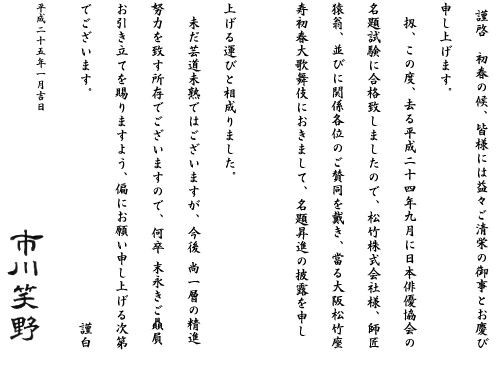 謹啓　初春の候、皆様には益々ご清栄の御事とお慶び
申し上げます。
扨、この度、去る平成二十四年九月に日本俳優協会の
名題試験に合格致しましたので、松竹株式会社様、師匠
猿翁、並びに関係各位のご賛同を戴き、當る大阪松竹座
寿初春大歌舞伎におきまして、名題昇進の披露を申し
上げる運びと相成りました。
未だ芸道未熟ではございますが、今後 尚一層の精進
努力を致す所存でございますので、何卒 末永きご贔屓
お引き立てを賜りますよう、偏にお願い申し上げる次第
でございます。　謹白
平成二十五年一月吉日
市川笑野